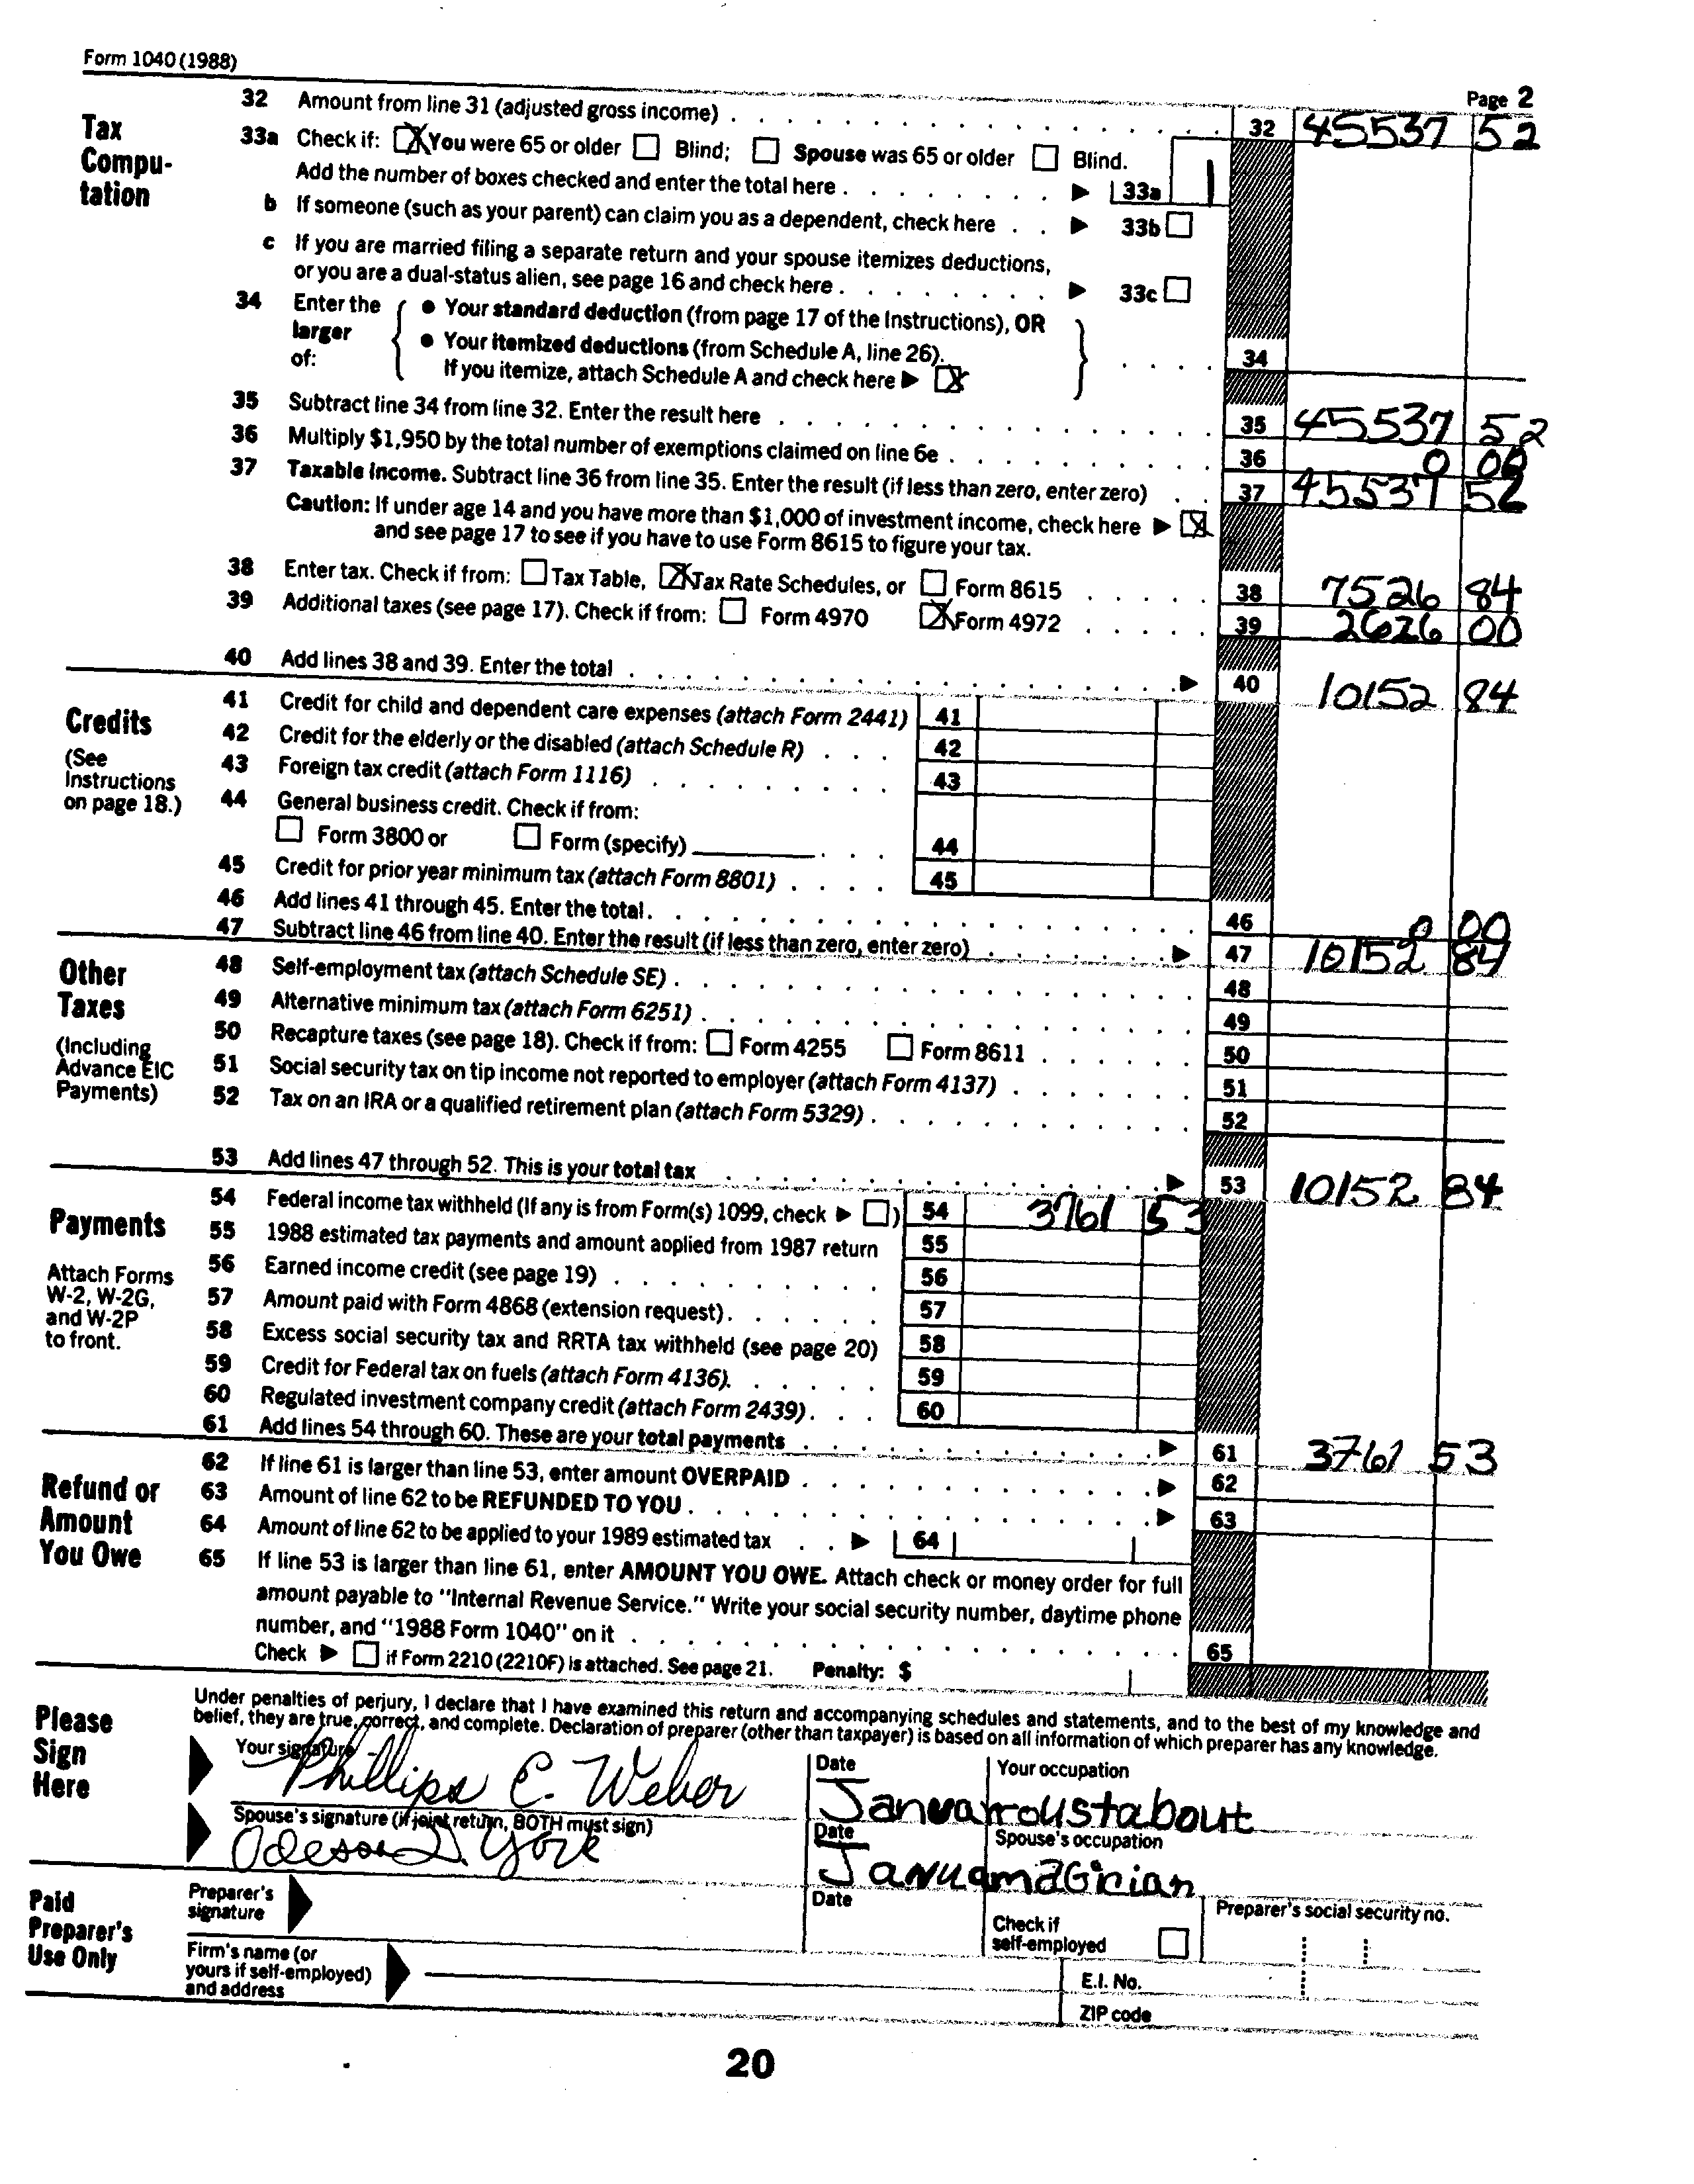 Form 1040 (1988)
Page 2
Tax Compu-tation
32 Amount from line 31 (adjusted gross income) . . . 32 45537 52
33a Check if: [X] You were 65 or older [ ] Blind; [ ] Spouse was 65 or older [ ] Blind.
Add the number of boxes checked and enter the total here . . . ▶ 33a 1
b If someone (such as your parent) can claim you as a dependent, check here . . ▶ 33b [ ]
c If you are married filing a separate return and your spouse itemizes deductions,
or you are a dual-status alien, see page 16 and check here . . . ▶ 33c [ ]
34 Enter the larger of: { ● Your standard deduction (from page 17 of the Instructions), OR
● Your itemized deductions (from Schedule A, line 26).
If you itemize, attach Schedule A and check here ▶ [X] } . . . . 34
35 Subtract line 34 from line 32. Enter the result here . . . 35 45537 52
36 Multiply $1,950 by the total number of exemptions claimed on line 6e . . . 36 0 00
37 Taxable income. Subtract line 36 from line 35. Enter the result (if less than zero, enter zero) . . 37 45537 52
Caution: If under age 14 and you have more than $1,000 of investment income, check here ▶ [X]
and see page 17 to see if you have to use Form 8615 to figure your tax.
38 Enter tax. Check if from: [ ] Tax Table, [X] Tax Rate Schedules, or [ ] Form 8615 . . . 38 7526 84
39 Additional taxes (see page 17). Check if from: [ ] Form 4970 [X] Form 4972 . . . 39 2626 00
40 Add lines 38 and 39. Enter the total . . . ▶ 40 10152 84
Credits
(See Instructions on page 18.)
41 Credit for child and dependent care expenses (attach Form 2441) 41
42 Credit for the elderly or the disabled (attach Schedule R) . . . 42
43 Foreign tax credit (attach Form 1116) . . . 43
44 General business credit. Check if from:
[ ] Form 3800 or [ ] Form (specify) . . . 44
45 Credit for prior year minimum tax (attach Form 8801) . . . . 45
46 Add lines 41 through 45. Enter the total. . . . 46 0 00
47 Subtract line 46 from line 40. Enter the result (if less than zero, enter zero) . . . ▶ 47 10152 84
Other Taxes
(Including Advance EIC Payments)
48 Self-employment tax (attach Schedule SE) . . . 48
49 Alternative minimum tax (attach Form 6251) . . . 49
50 Recapture taxes (see page 18). Check if from: [ ] Form 4255 [ ] Form 8611 . . . 50
51 Social security tax on tip income not reported to employer (attach Form 4137) . . . 51
52 Tax on an IRA or a qualified retirement plan (attach Form 5329) . . . 52
53 Add lines 47 through 52. This is your total tax . . . ▶ 53 10152 84
Payments
Attach Forms W-2, W-2G, and W-2P to front.
54 Federal income tax withheld (If any is from Form(s) 1099, check ▶ [ ] ) 54 3761 53
55 1988 estimated tax payments and amount applied from 1987 return 55
56 Earned income credit (see page 19) . . . 56
57 Amount paid with Form 4868 (extension request) . . . 57
58 Excess social security tax and RRTA tax withheld (see page 20) 58
59 Credit for Federal tax on fuels (attach Form 4136). . . . 59
60 Regulated investment company credit (attach Form 2439) . . . 60
61 Add lines 54 through 60. These are your total payments . . . ▶ 61 3761 53
Refund or Amount You Owe
62 If line 61 is larger than line 53, enter amount OVERPAID . . . ▶ 62
63 Amount of line 62 to be REFUNDED TO YOU . . . ▶ 63
64 Amount of line 62 to be applied to your 1989 estimated tax . . ▶ 64
65 If line 53 is larger than line 61, enter AMOUNT YOU OWE. Attach check or money order for full
amount payable to "Internal Revenue Service." Write your social security number, daytime phone
number, and "1988 Form 1040" on it . . . 65
Check ▶ [ ] if Form 2210 (2210F) is attached. See page 21. Penalty: $
Please Sign Here
Under penalties of perjury, I declare that I have examined this return and accompanying schedules and statements, and to the best of my knowledge and
belief, they are true, correct, and complete. Declaration of preparer (other than taxpayer) is based on all information of which preparer has any knowledge.
Your signature Date Your occupation
Phillips C. Weber Januar roustabout
Spouse's signature (if joint return, BOTH must sign) Date Spouse's occupation
Odessa D. York Janua magician
Paid Preparer's Use Only
Preparer's signature Date Check if self-employed [ ] Preparer's social security no.
Firm's name (or yours if self-employed) and address
E.I. No.
ZIP code
20